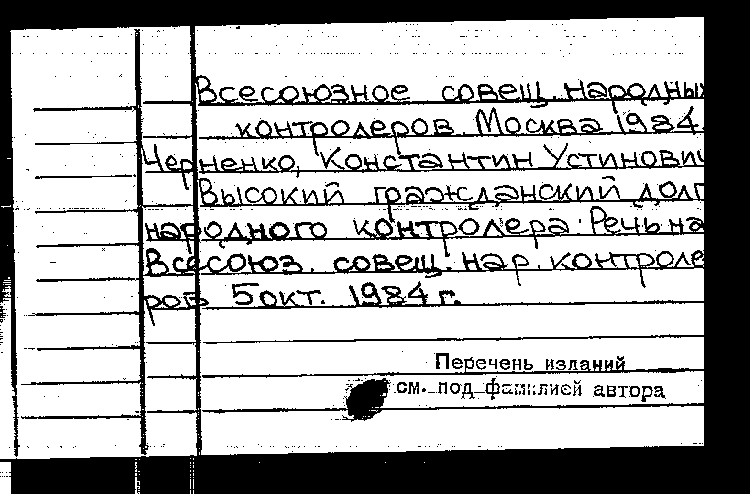 Всесоюзное совещ. народны
контролеров. Москва 1984.
Черненко, Константин Устинови
Высокий гражданский долг
народного контролера: Речь на
Всесоюз. совещ. нар. контроле
ров 5 окт. 1984 г.
Перечень изданий
см. под фамилией автора